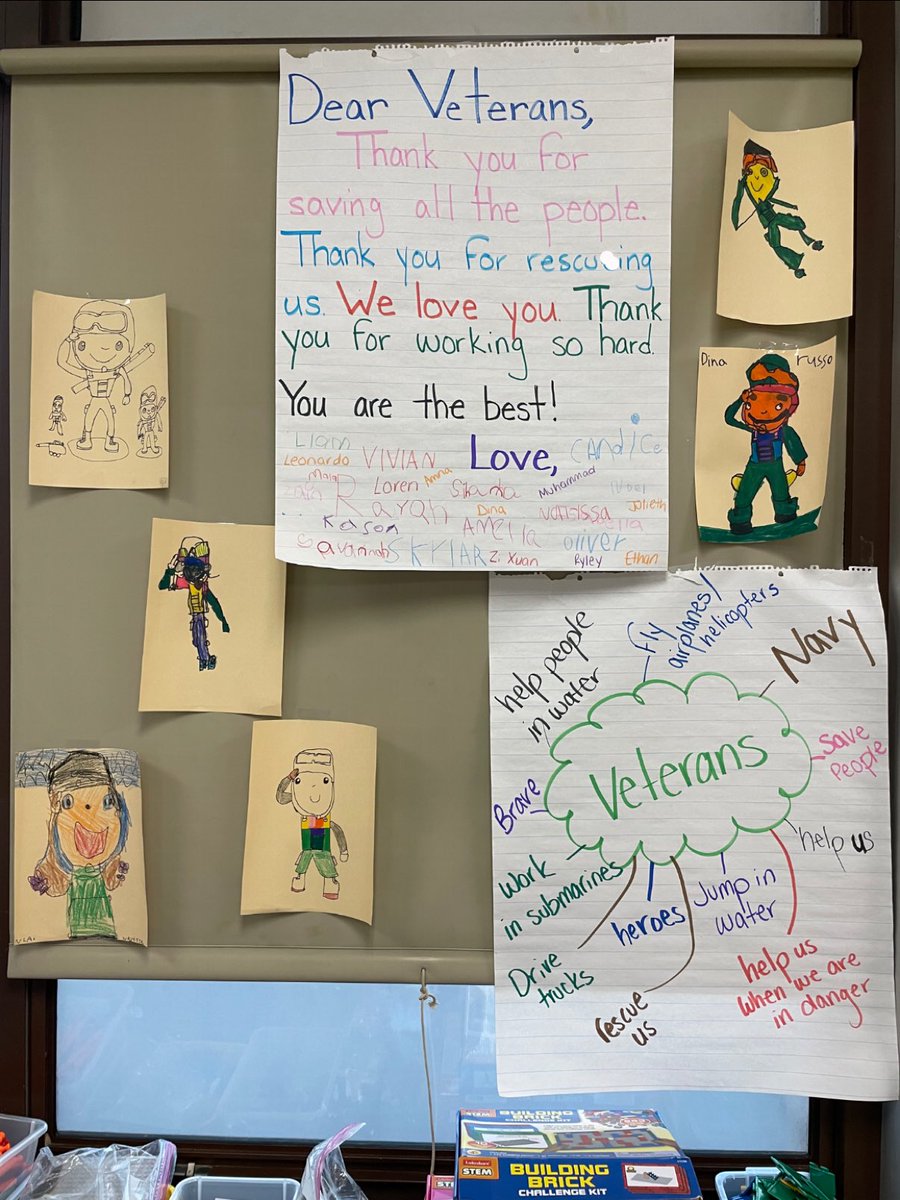 Dear Veterans,
Thank you for
saving all the people.
Thank you for rescuing
us. We love you. Thank
you for working so hard.
You are the best!
Liam Love, CANdiCe
Leonardo VIVIAN Anna
Maia Loren Muhammad
Zain Dina Vanessa Julieth
Kason AMELIA Oliver
Savannah SKYLAR Zi Xuan Ryley Ethan
Dina russo
help people
in water
fly
airplanes/
helicopters
Navy
Veterans
Save
People
Brave
help us
work
in submarines
heroes
Jump in
water
Drive
trucks
rescue
us
help us
when we are
in danger
STEM BUILDING BRICK
CHALLENGE KIT
Lakeshore
STEM
BUILDING BRICK
CHALLENGE KIT